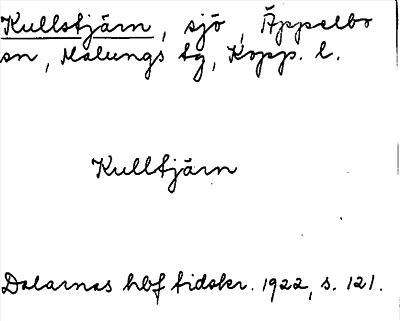 Kullstjärn, sjö, Äppelbo
sn, Malungs tg, Kopp. l.
Kulltjärn
Dalarnas hbf tidskr. 1922, s. 121.